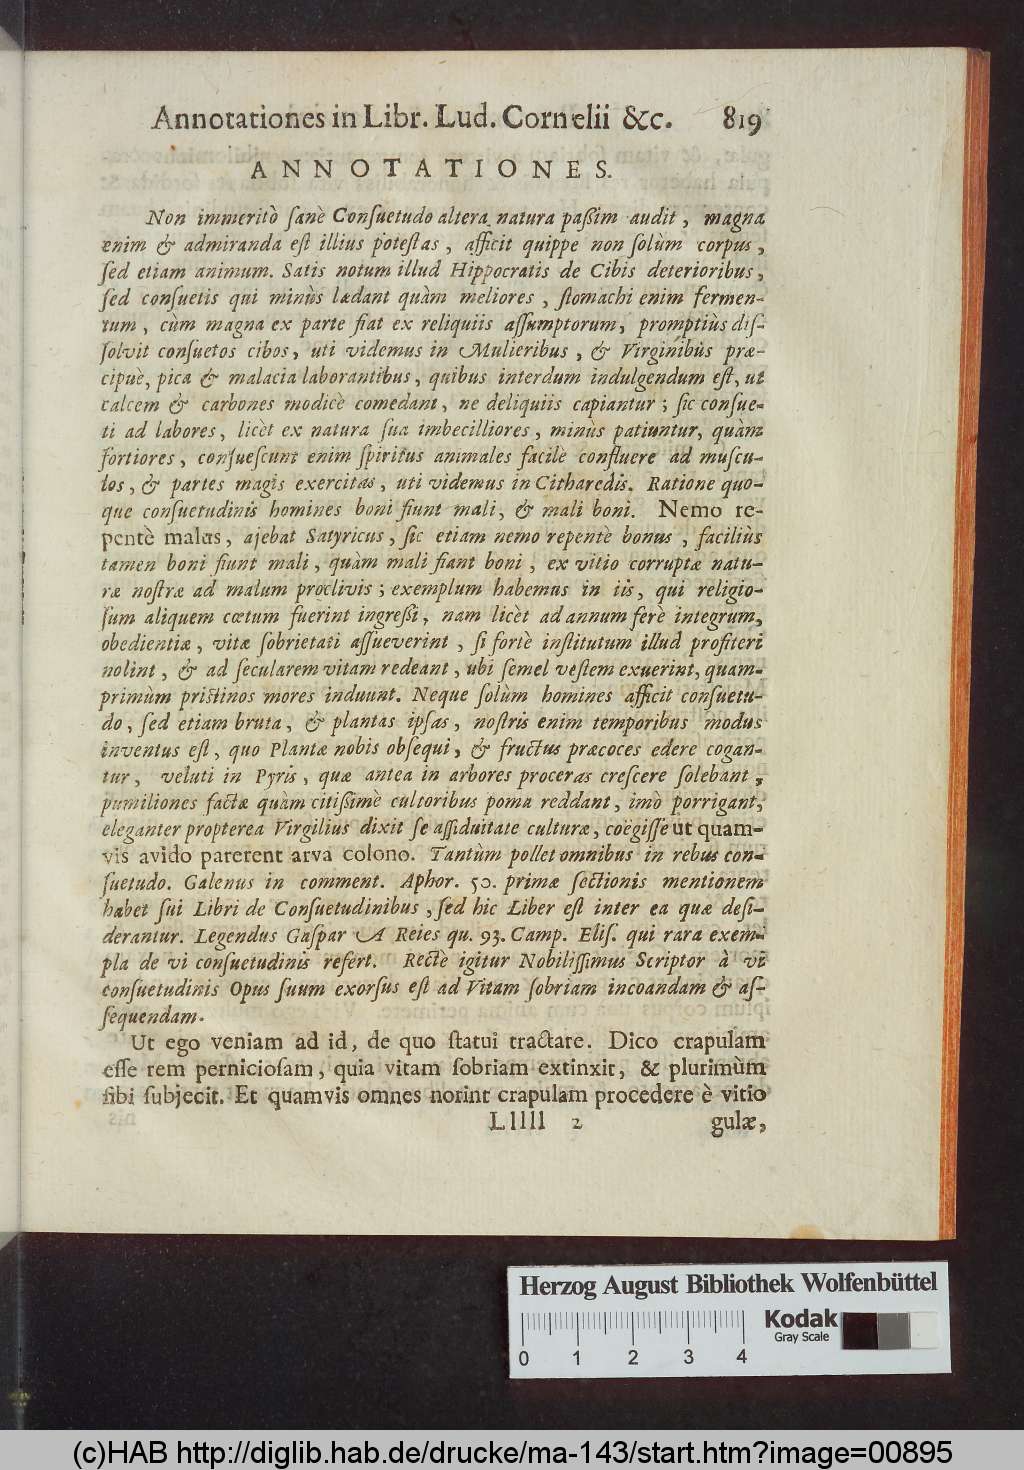 Annotationes in Libr. Lud. Cornelii &c. 819
ANNOTATIONES.
Non immeritò ſanè Conſuetudo altera natura paßim audit, magna
enim & admiranda eſt illius poteſtas, afficit quippe non ſolùm corpus,
ſed etiam animum. Satis notum illud Hippocratis de Cibis deterioribus,
ſed conſuetis qui minùs lædant quàm meliores, ſtomachi enim fermen-
tum, cùm magna ex parte fiat ex reliquiis aſſumptorum, promptiùs diſ-
ſolvit conſuetos cibos, uti videmus in Mulieribus, & Virginibùs præ-
cipuè, pica & malacia laborantibus, quibus interdum indulgendum eſt, ut
calcem & carbones modicè comedant, ne deliquiis capiantur; ſic conſue-
ti ad labores, licèt ex natura ſua imbecilliores, minùs patiuntur, quàm
fortiores, conſueſcunt enim ſpiritus animales facilè confluere ad muſcu-
los, & partes magis exercitas, uti videmus in Citharedis. Ratione quo-
que conſuetudinis homines boni fiunt mali, & mali boni. Nemo re-
pentè malus, ajebat Satyricus, ſic etiam nemo repentè bonus, faciliùs
tamen boni fiunt mali, quàm mali fiant boni, ex vitio corruptæ natu-
ræ noſtræ ad malum proclivis; exemplum habemus in iis, qui religio-
ſum aliquem cœtum fuerint ingreßi, nam licèt ad annum ferè integrum,
obedientiæ, vitæ ſobrietati aſſueverint, ſi fortè inſtitutum illud profiteri
nolint, & ad ſecularem vitam redeant, ubi ſemel veſtem exuerint, quam-
primùm priſtinos mores induunt. Neque ſolùm homines afficit conſuetu-
do, ſed etiam bruta, & plantas ipſas, noſtris enim temporibus modus
inventus eſt, quo Plantæ nobis obſequi, & fructus præcoces edere cogan-
tur, veluti in Pyris, quæ antea in arbores proceras creſcere ſolebant,
pumiliones factæ quàm citißimè cultoribus poma reddant, imò porrigant,
eleganter propterea Virgilius dixit ſe aſſiduitate culturæ, coëgiſſe ut quam-
vis avido parerent arva colono. Tantùm pollet omnibus in rebus con-
ſuetudo. Galenus in comment. Aphor. 50. primæ ſectionis mentionem
habet ſui Libri de Conſuetudinibus, ſed hic Liber eſt inter ea quæ deſi-
derantur. Legendus Gaſpar A Reies qu. 93. Camp. Eliſ. qui rara exem-
pla de vi conſuetudinis refert. Rectè igitur Nobiliſſimus Scriptor à vi
conſuetudinis Opus ſuum exorſus eſt ad Vitam ſobriam incoandam & aſ-
ſequendam.
Ut ego veniam ad id, de quo ſtatui tractare. Dico crapulam
eſſe rem pernicioſam, quia vitam ſobriam extinxit, & plurimùm
ſibi ſubjecit. Et quamvis omnes norint crapulam procedere è vitio
Lllll 2 gulæ,
Herzog August Bibliothek Wolfenbüttel
Kodak
Gray Scale
0 1 2 3 4
(c)HAB http://diglib.hab.de/drucke/ma-143/start.htm?image=00895